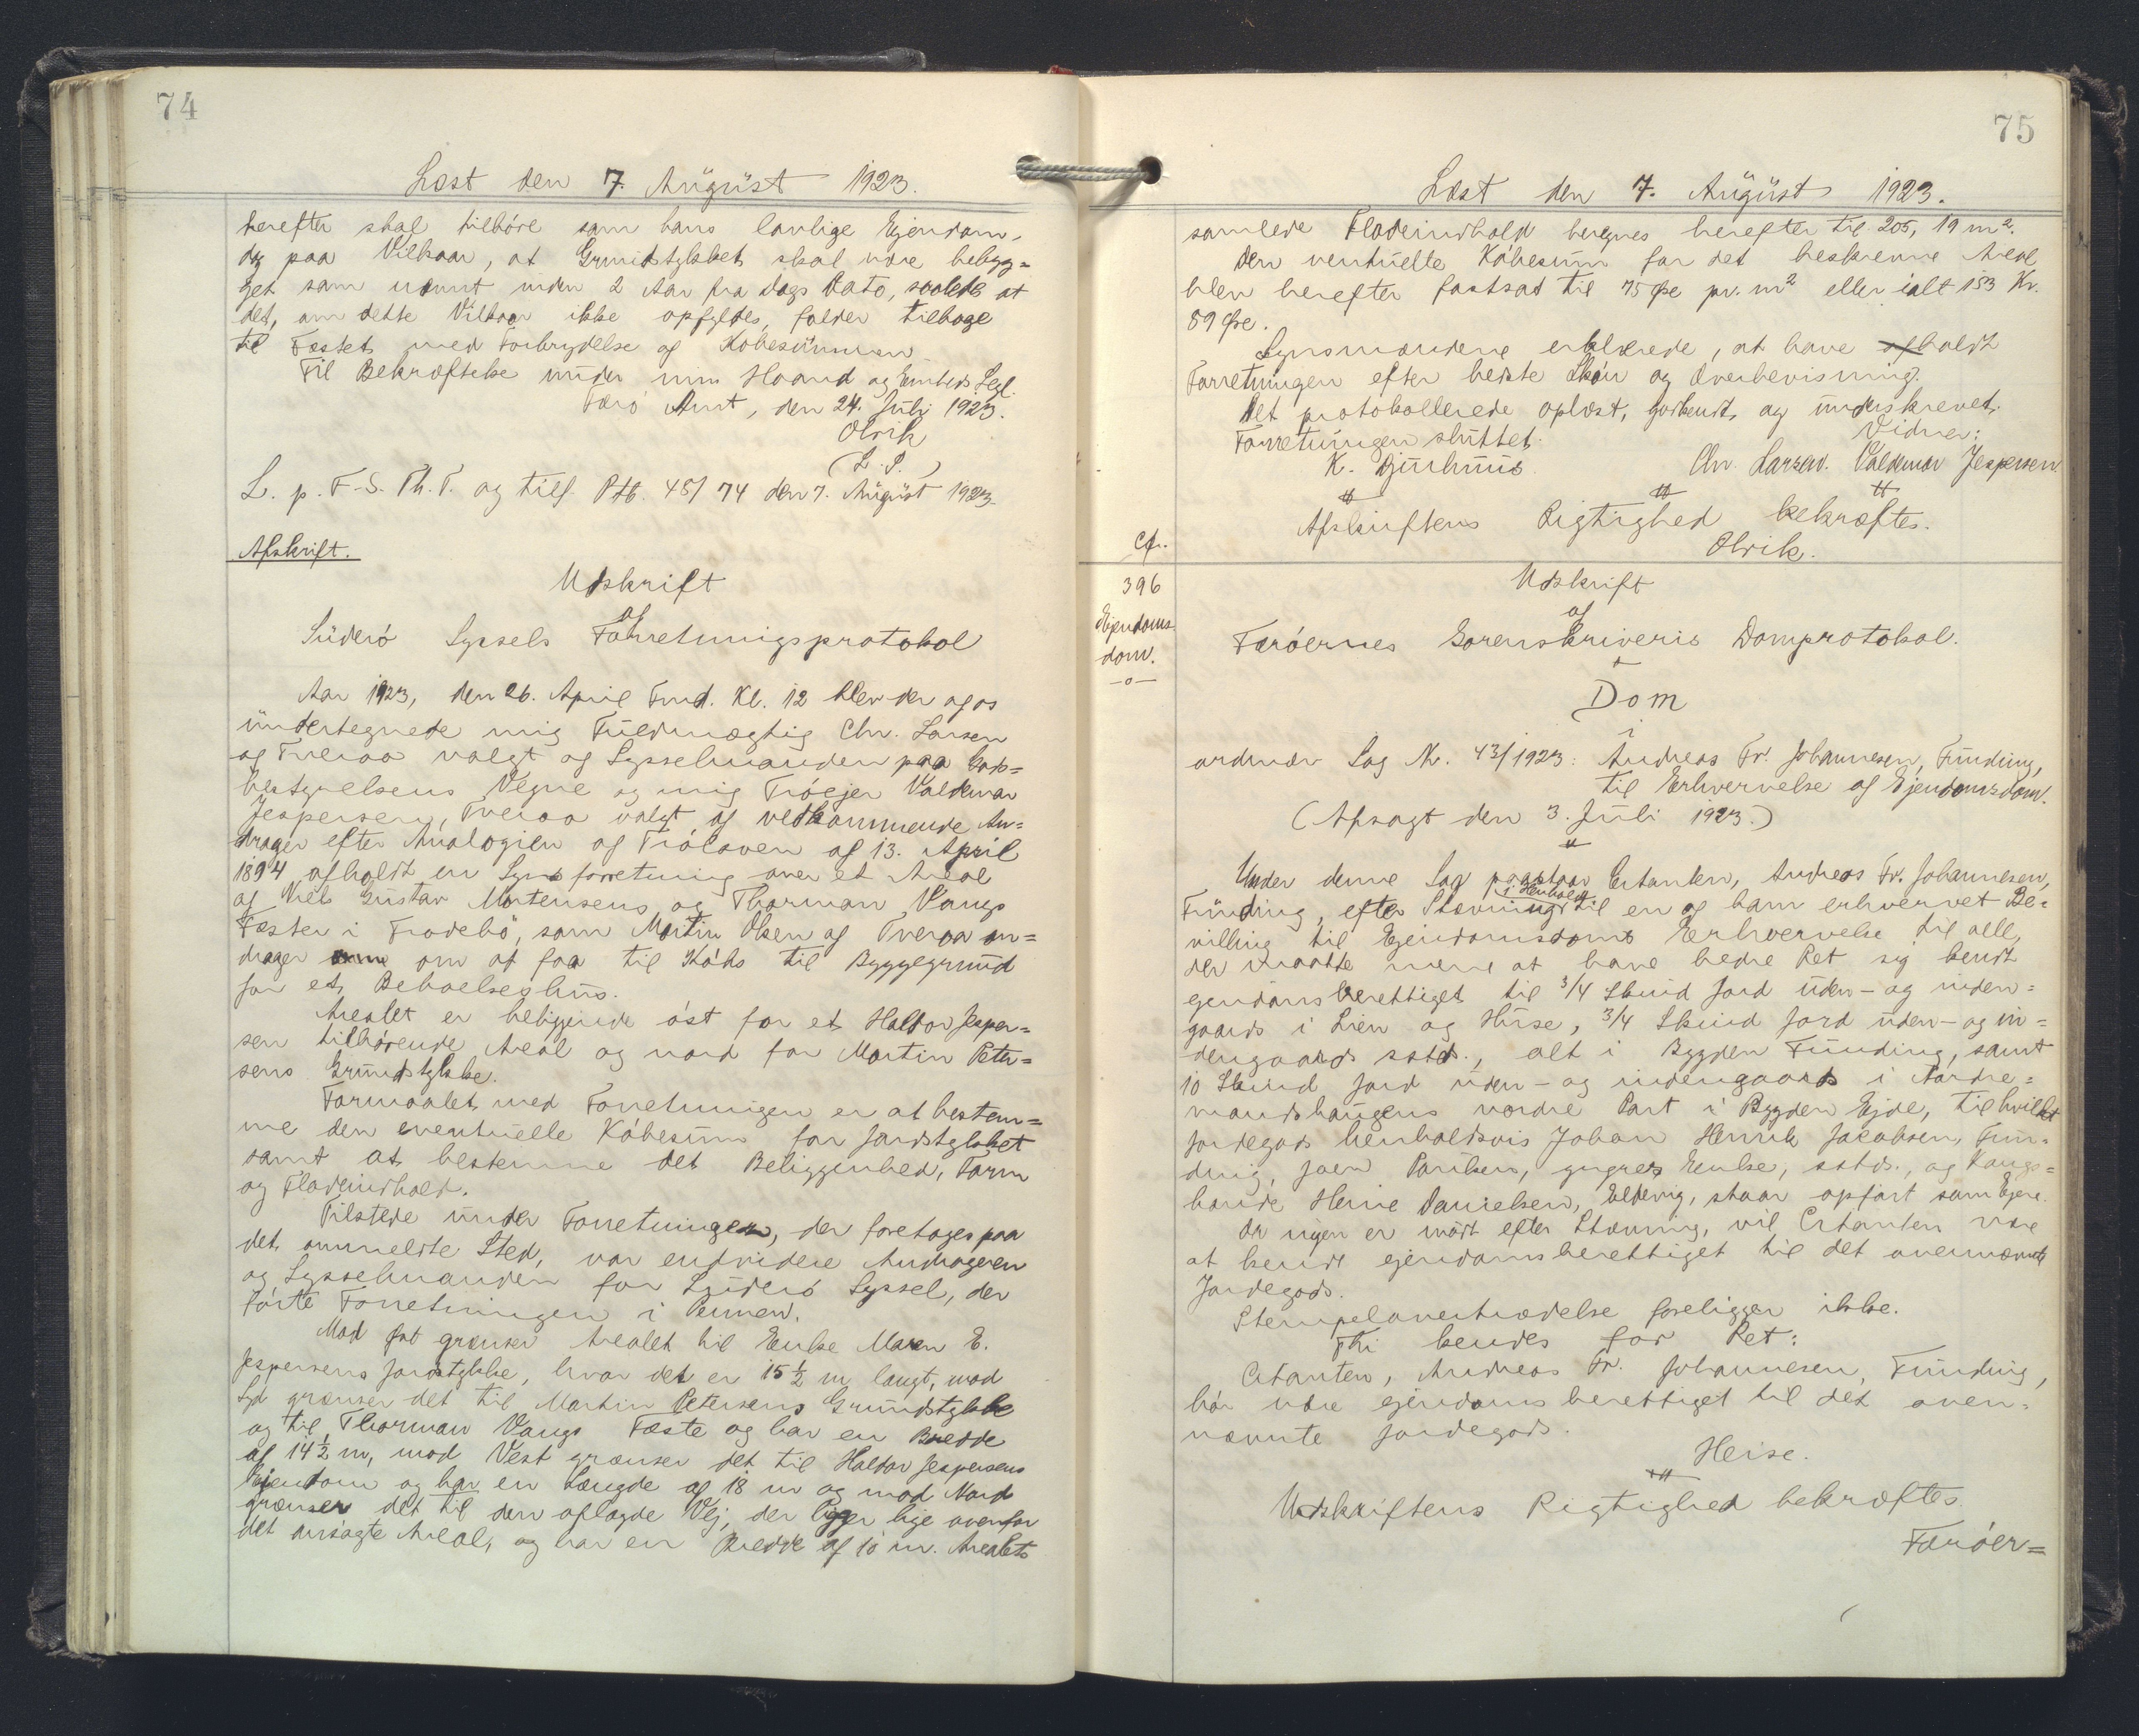 74
Læst den 7. August 1923.
herefter skal tilhøre som hans lovlige Ejendom,
dog paa Vilkaar, at Grundstykket skal være bebyg=
get som nævnt inden 2 Aar fra Dags Dato, saaledes at
det, om dette Vilkaar ikke opfyldes, falder tilbage
til Fæstet med Forbrydelse af Købesummen
Til Bekræftelse under min Haand og Embeds Segl.
Færø Amt, den 24. Juli 1923.
Olrik
(L. S.)
L. p. F-S. Th. T. og tilf. Ptk. 45/74 den 7. August 1923.
Afskrift.
Udskrift
af
Suderø Syssels Forretningsprotokol
Aar 1923, den 26. April Fmd. Kl. 12 blev der af os
undertegnede mig Fuldmægtig Chr. Larsen
af Tveraa valgt af Sysselmanden paa Gods=
bestyrelsens Vegne og mig Trøejer Valdemar
Jespersen, Tveraa valgt af vedkommende An=
drager efter Analogien af Trøloven af 13. April
1894 afholdt en Synsforretning over et Areal
af Niels Gustav Mortensens og Thorman Vangs
Fæster i Frodebø, som Martin Olsen af Tveraa an=
drager om at faa til Købs til Byggegrund
for et Beboelseshus.
Arealet er beliggende øst for et Haldor Jesper=
sen tilhørende Areal og nord for Martin Peter=
sens Grundstykke.
Formaalet med Forretningen er at bestem=
me den eventuelle Købesum for Jordstykket
samt at bestemme det Beliggenhed, Form
og Fladeindhold.
Tilstede under Forretningen, der foretoges paa
det anmeldte Sted, var endvidere Andrageren
og Sysselmanden for Suderø Syssel, der
førte Forretningen i Pennen.
Mod Øst grænser Arealet til Enke Maren E.
Jespersens Jordstykke, hvor det er 15 1/2 m langt, mod
Syd grænser det til Martin Petersens Grundstykke
og til Thorman Vangs Fæste og har en Bredde
af 14 1/2 m, mod Vest grænser det til Haldor Jespersens
Ejendom og har en Længde af 18 m og mod Nord
grænser det til den aflagde Vej, der ligger lige ovenfor
det ansøgte Areal, og har en Bredde af 10 m. Arealets
75
Læst den 7. August 1923.
samlede Fladeindhold beregnes herefter til 205,19 m².
Den eventuelte Købesum for det beskrevne Areal
blev herefter fastsat til 75 Øre pr. m² eller ialt 153 Kr.
89 Øre.
Synsmændene erklærede, at have afholdt
Forretningen efter bedste Skøn og Overbevisning.
Det protokollerede oplæst, godkendt og underskrevet.
Forretningen sluttet.
Vidner:
K. Djurhuus. Chr. Larsen. Valdemar Jespersen
Afskriftens Rigtighed bekræftes.
Olrik.
Cfr.
396
Ejendoms-
dom.
—o—
Udskrift
af
Færøernes Sorenskriveris Domprotokol.
Dom
i
ordinær Sag Nr. 43/1923: Andreas Fr. Johannesen, Funding,
til Erhvervelse af Ejendomsdom.
(Afsagt den 3. Juli 1923.)
Under denne Sag paastaar Citanten, Andreas Fr. Johannesen,
Funding, efter Stævning i Henhold til en af ham erhvervet Be=
villing til Ejendomsdoms Erhvervelse til alle,
der maatte mene at have bedre Ret sig kendt
ejendomsberettiget til 3/4 Skind Jord uden- og inden=
gaards i Lien og Huse, 3/4 Skind Jord uden- og in=
dengaards sstds., alt i Bygden Funding, samt
10 Skind Jord uden- og indengaards i Nordre=
mandshaugens nordre Part i Bygden Ejde, til hvilket
Jordegods henholdsvis Johan Henrik Jakobsen, Fun=
ding, Joen Poulsens, yngres Enke, sstds., og Kongs=
bonde Heine Danielsen, Eldevig, staar opført som Ejere.
Da ingen er mødt efter Stævning, vil Citanten være
at kende ejendomsberettiget til det ovennævnte
Jordegods.
Stempelovertrædelse foreligger ikke.
Thi kendes for Ret:
Citanten, Andreas Fr. Johannesen, Funding,
bør være ejendomsberettiget til det oven=
nævnte Jordegods.
Heise.
Udskriftens Rigtighed bekræftes.
Færøer=